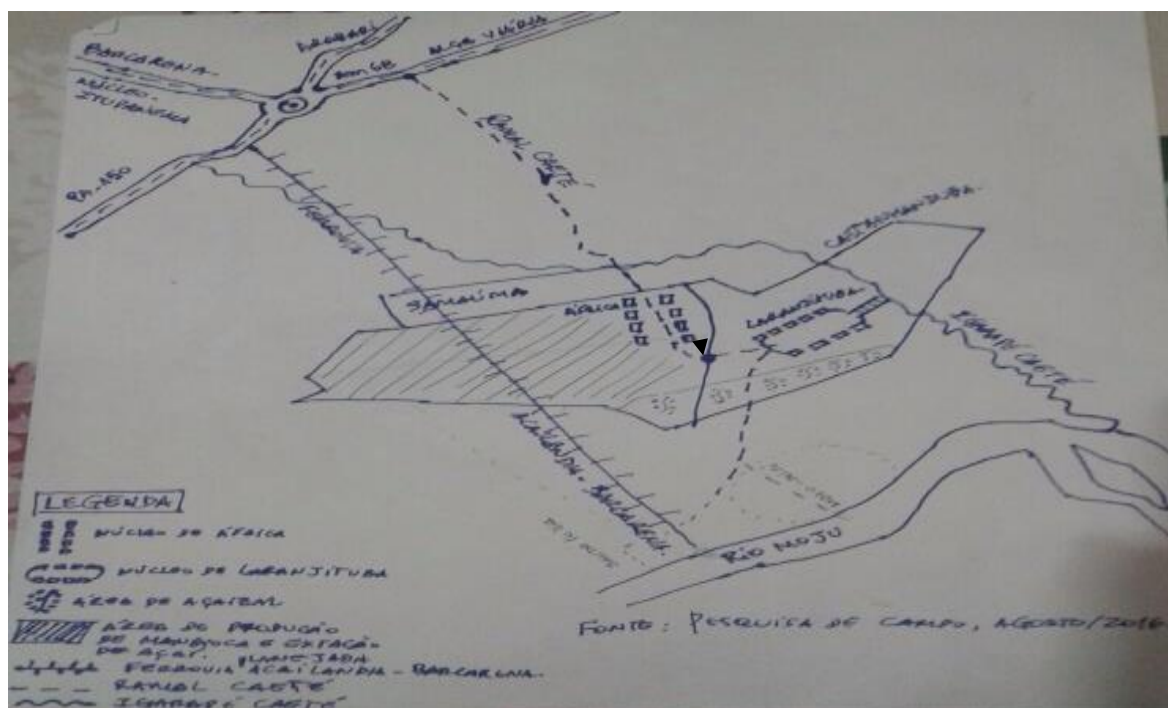 BARCARENA
NÚCLEO
ITUPANEMA
ARAPARI
KM 68
ALÇA VIÁRIA
PA-150
RAMAL CAETÉ
FERROVIA
SAMAÚMA
CASTANHANDUBA
ÁFRICA
LARANJITUBA
IGARAPÉ CAETÉ
AÇAILANDIA - BARCARENA
RIO MOJU
LEGENDA
NÚCLEO DE ÁFRICA
NÚCLEO DE LARANJITUBA
ÁREA DE AÇAIZAL
ÁREA DE PRODUÇÃO
DE MANDIOCA E EXTAÇÃO
DE AÇAI.
PLANEJADA
FERROVIA AÇAILANDIA - BARCARENA.
RAMAL CAETÉ
IGARAPÉ CAETÉ
FONTE: PESQUISA DE CAMPO, AGOSTO/2016